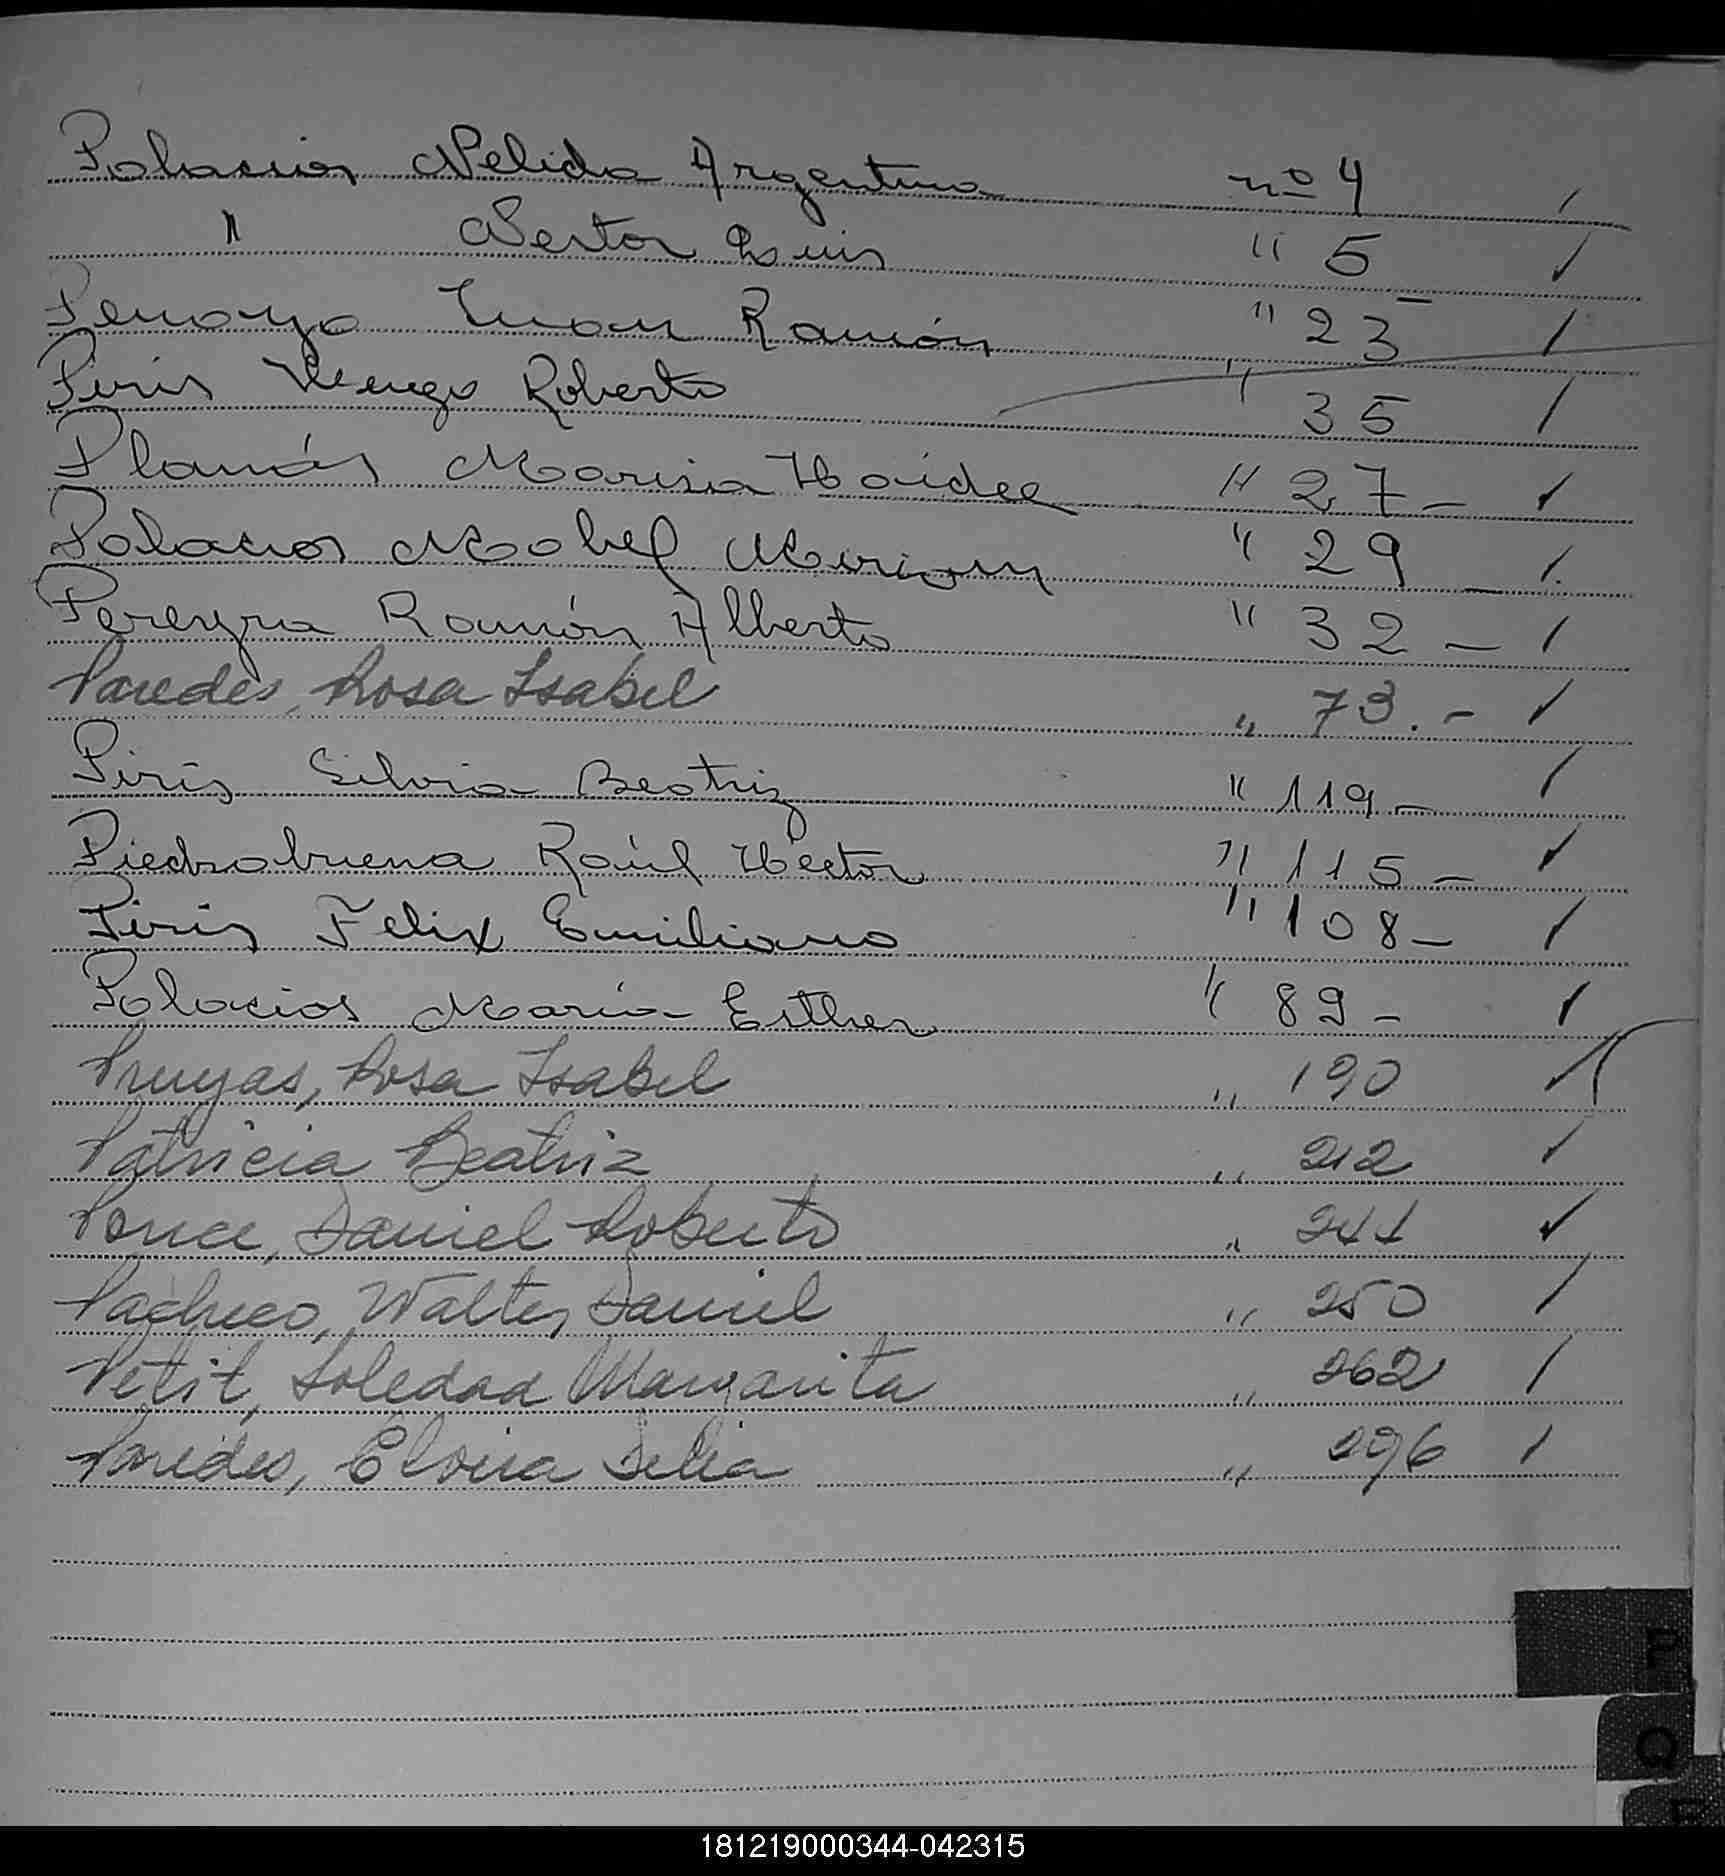 Palacios Nelida Argentina nº 4 /
" Nestor Luis " 5 ✓
Penayo Juan Ramón " 23 /
Piris Hugo Roberto " 35 /
Planás Marisa Haidee " 27 - ✓
Palacios Mabel Miriam " 29 - /
Pereyra Ramón Alberto " 32 - /
Paredes, Rosa Isabel " 73.- ✓
Piris Silvia Beatriz " 119 - /
Piedrabuena Raúl Hector " 115 - ✓
Piris Felix Emiliano " 108 - /
Palacios María Esther " 89 - ✓
Pruyas, Rosa Isabel " 190 ✓
Patricia Beatriz " 212 ✓
Ponce, Daniel Roberto " 244 ✓
Pacheco, Walter Daniel " 250 /
Petit, Soledad Margarita " 262 /
Paredes, Eloisa Delia " 296 /
P
Q
181219000344-042315